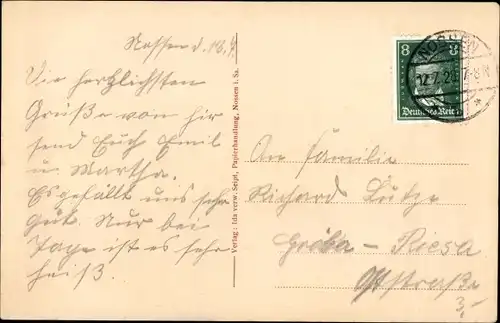 Nossen d. 12.7.
Die herzlichsten
Grüße von hir
send Euch Emil
u. Martha.
Es gefällt uns sehr
gut. Nur bei
Tage ist es sehr
heiß.
Verlag: Ida verw. Seipt, Papierhandlung, Nossen i. Sa.
NOSSEN
12.7.28
8 8
Deutsches Reich
An Familie
Richard Lutze
Gröba - Riesa
Oststraße
3,-